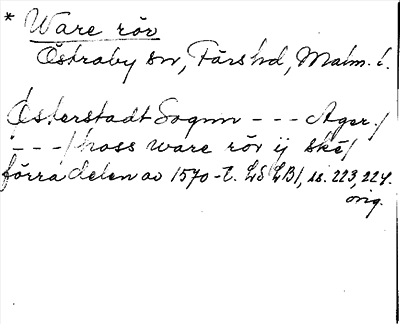 * Ware röv
Östraby sn, Färs hd, Malm. l.
Østerstadt Sognn --- Ager/
---/ hoss ware röv ij ske/
förra delen av 1570-t. LSLB1, s. 223, 224.
orig.